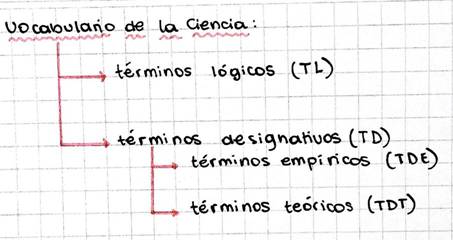 Vocabulario de la Ciencia:
términos lógicos (TL)
términos designativos (TD)
términos empíricos (TDE)
términos teóricos (TDT)